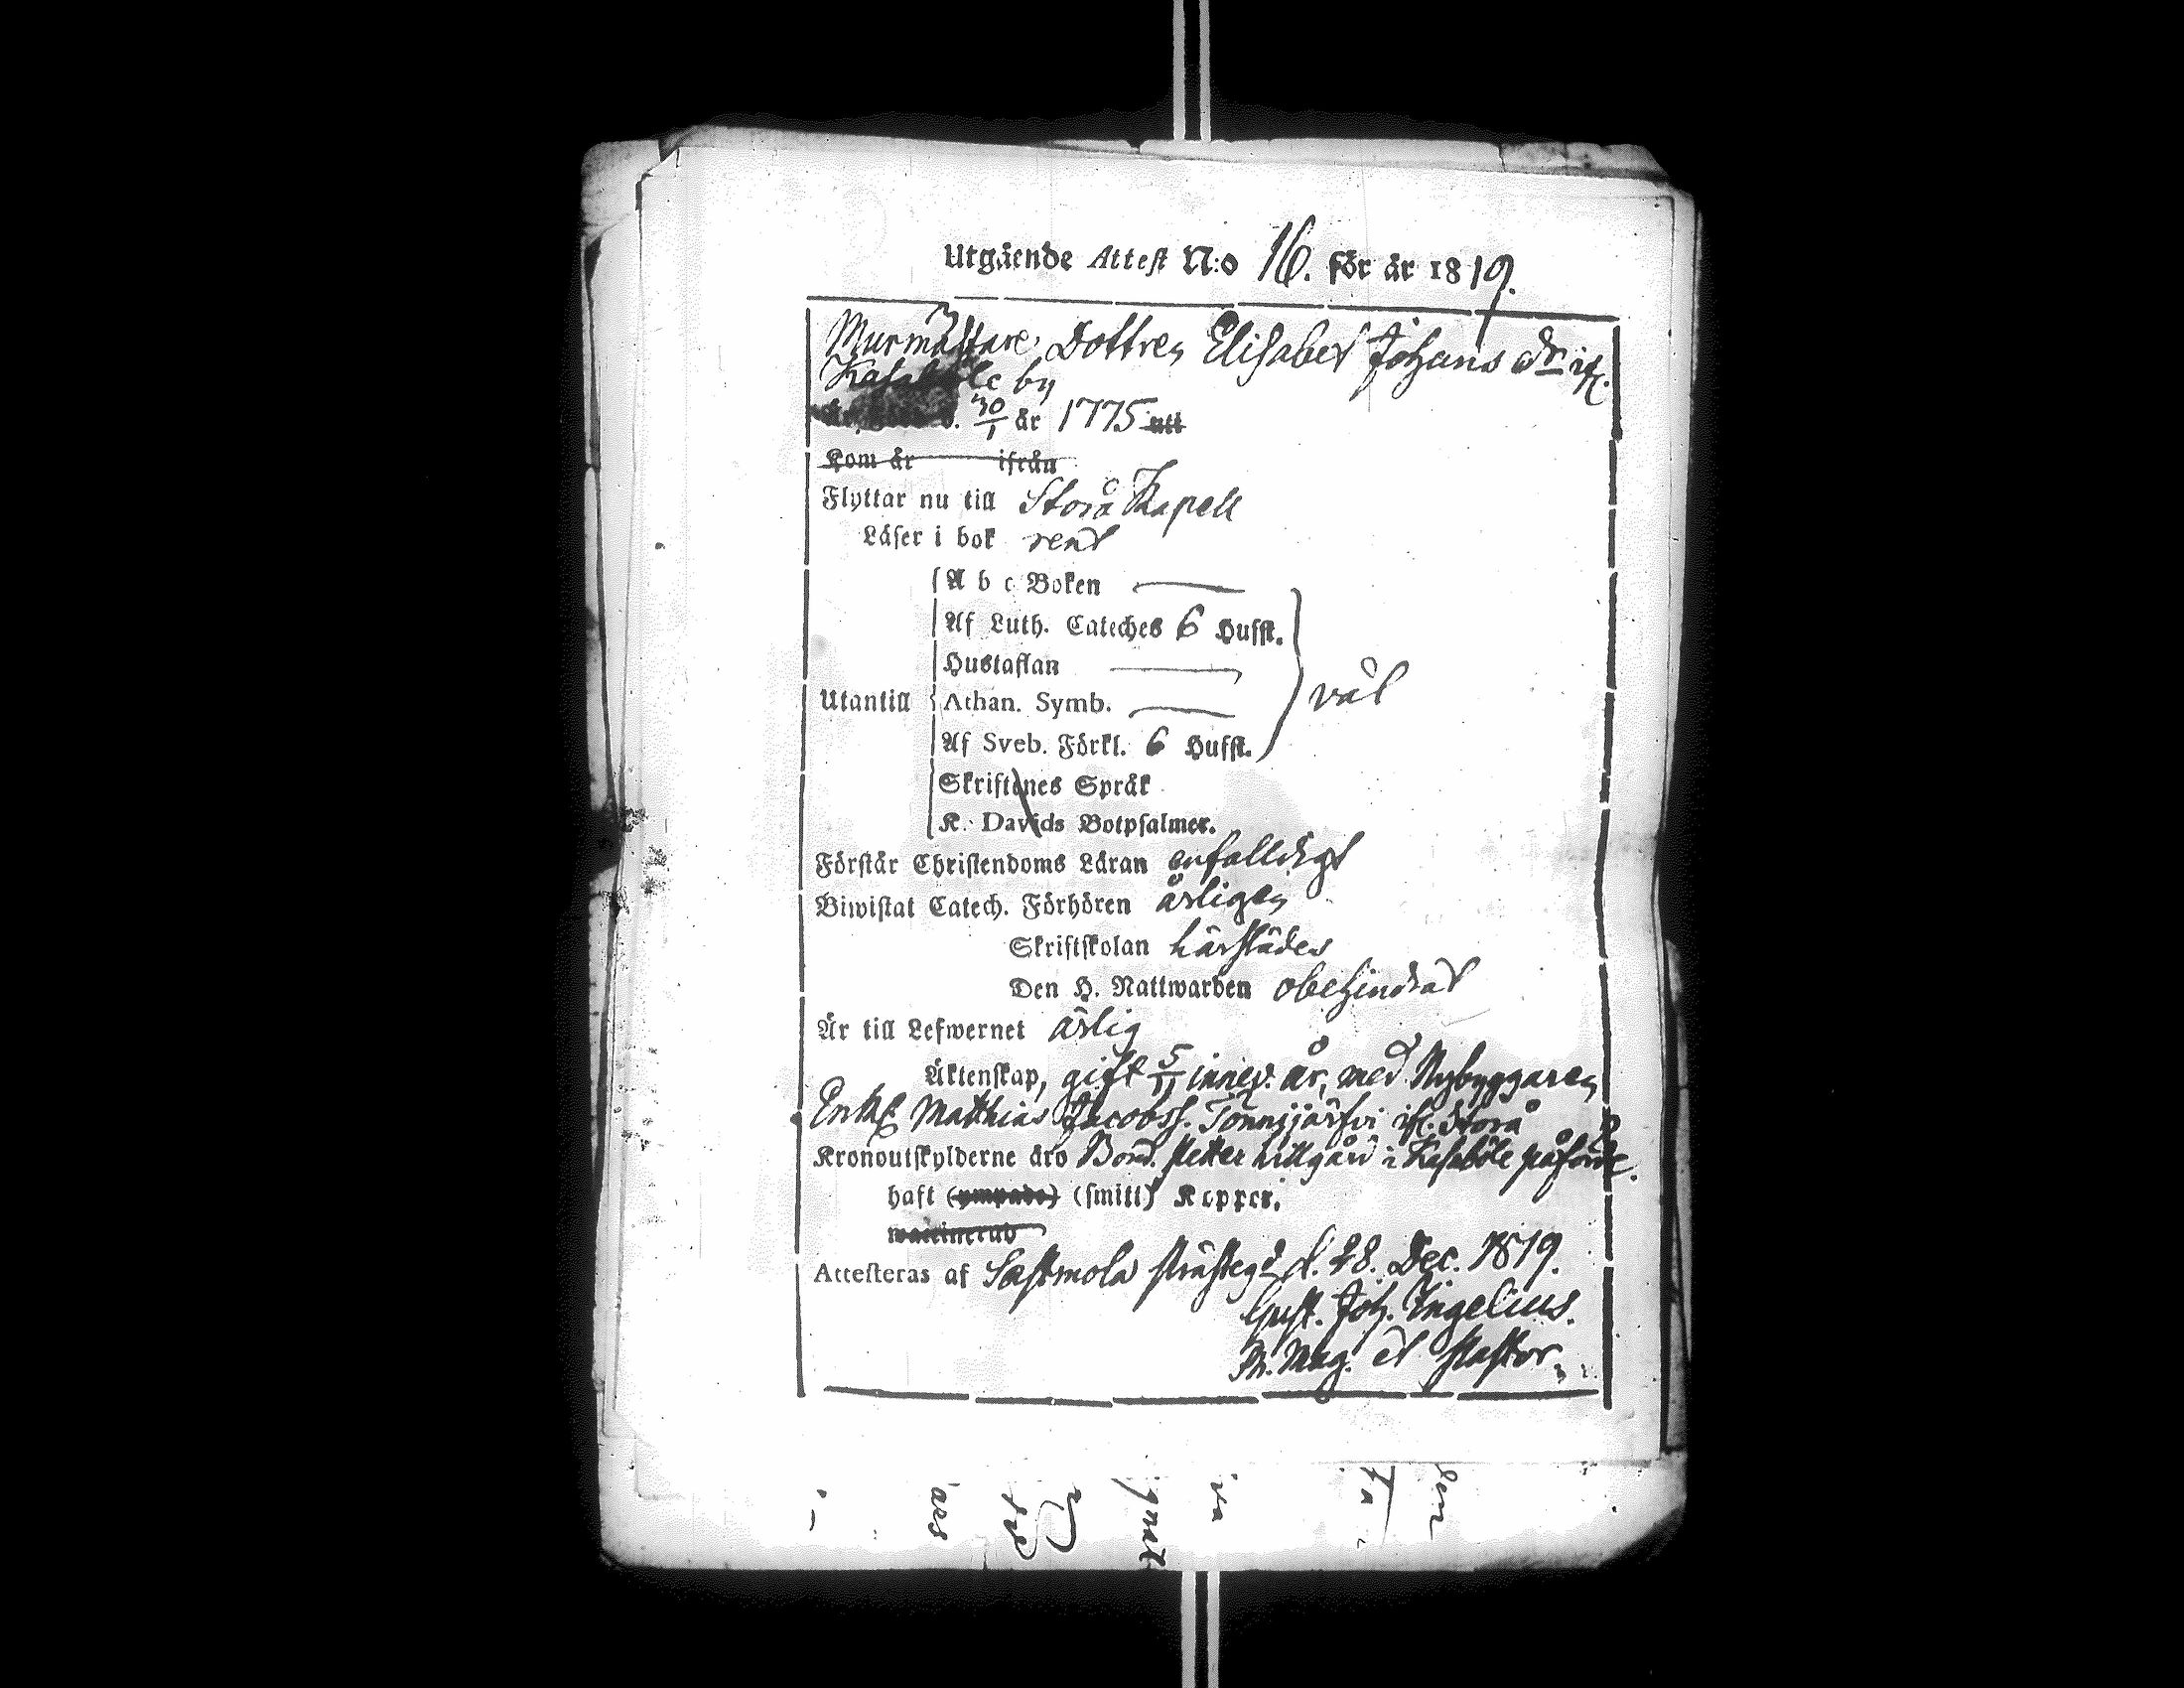 Utgående Attest N:o 16. för år 1819.
Murmästare Dottren Elisabet Johans dr if.
Kasaböle by
d. 30/1 år 1775 utt
Kom år ifrån
Flyttar nu till Storå Kapell
Läser i bok rent
A b c Boken —
Af Luth. Cateches 6 Hufst.
Hustaflan —
Utantill Athan. Symb. — väl
Af Sveb. Förkl. 6 Hufst.
Skriftenes Språk
K. Davids Botpsalmer.
Förstår Christendoms Läran enfalldigt
Biwistat Catech. Förhören årligen
Skriftskolan härstädes
Den H. Nattwarden obehindrat
Är till Lefwernet ärlig
Äktenskap, gift 5/11 innev. år, med Nybyggaren
Enkl. Matthias Jacobss. Tönnijärfvi if. Storå
Kronoutskylderne äro Bond. Petter Lillgård i Kasaböle påförde
haft (ympade) (smitt) Kopper.
waccinerad
Attesteras af Sastmola Prästegd d. 28. Dec. 1819.
Gust. Joh. Ingelius.
Ph. Mag. et Pastor.